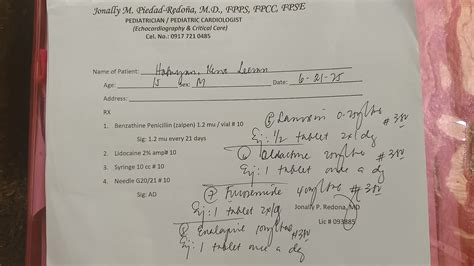 Jonally M. Piedad-Redoña, M.D., FPPS, FPCC, FPSE
PEDIATRICIAN / PEDIATRIC CARDIOLOGIST
(Echocardiography & Critical Care)
Cel. No.: 0917 721 0485
Name of Patient:
Age: 15 Sex: M Date: 6-21-25
Address:
RX
1. Benzathine Penicillin (zalpen) 1.2 mu / vial # 10
Sig: 1.2 mu every 21 days
2. Lidocaine 2% amp# 10
3. Syringe 10 cc # 10
4. Needle G20/21 # 10
Sig: AD
Lanoxin 0.25mg/tab
1/2 tablet 2x/day
Aldactone
1 tablet once a day
Furosemide 40mg/tab
1 tablet 2x/day
Jonally P. Redona, MD
Lic # 093885
Enalapril 10mg/tab
1 tablet once a day